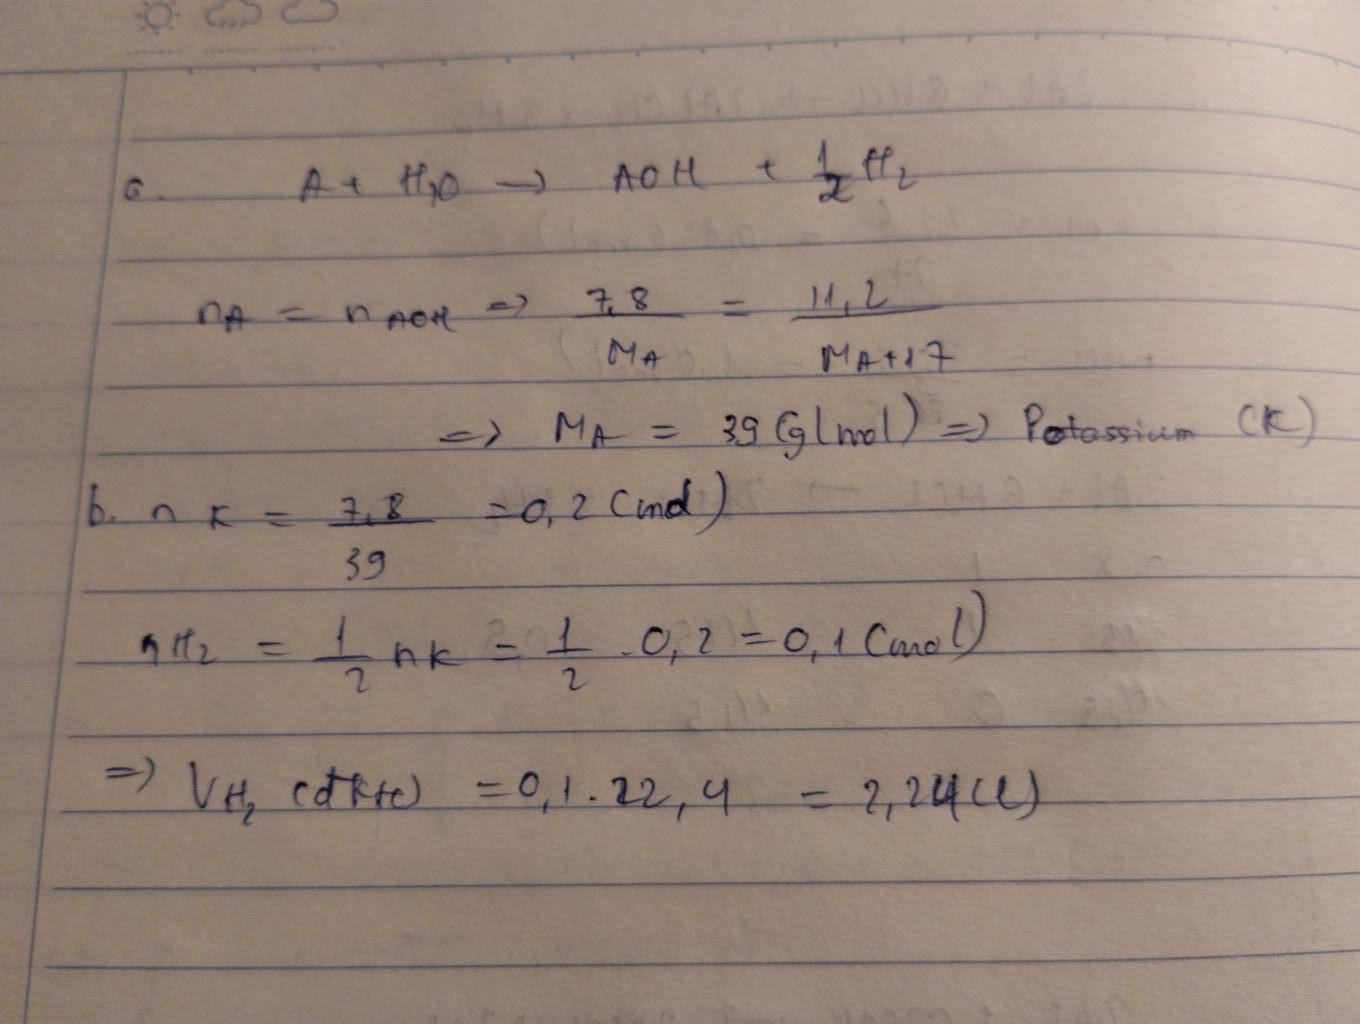 a. A + H₂O → AOH + 1/2 H₂
nA = nAOH => 7,8/MA = 11,2/MA+17
=> MA = 39 (g/mol) => Potassium (K)
b. nK = 7,8/39 = 0,2 (mol)
nH₂ = 1/2 nK = 1/2 . 0,2 = 0,1 (mol)
=> VH₂ (đktc) = 0,1 . 22,4 = 2,24 (l)